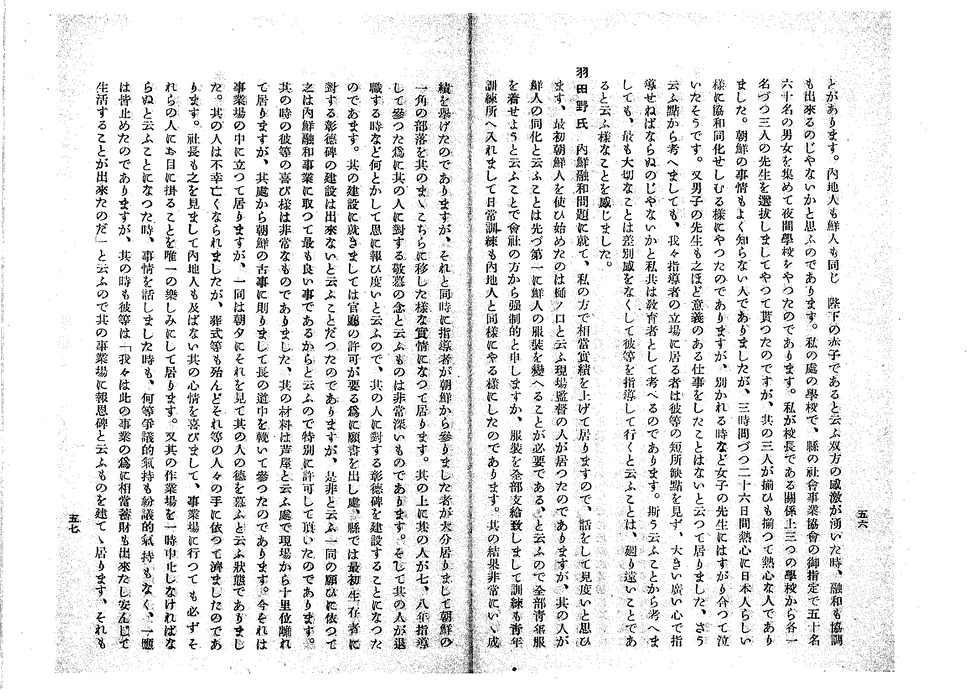 とがあります。內地人も鮮人も同じ　陛下の赤子であると云ふ双方の感激が湧いた時、融和も協調
も出來るのじやないかと思ふのであります。私の處の學校で、縣の社會事業協會の御指定で五十名
六十名の男女を集めて夜間學校をやつたのであります。私が校長である關係上三つの學校から各一
名づつ三人の先生を選拔しましてやつて貰つたのですが、其の三人が揃ひも揃つて熱心な人であり
ました。朝鮮の事情もよく知らない人でありましたが、三時間づつ二十六日間熱心に日本人らしい
樣に協和同化せしむる樣にやつたのでありますが、別かれる時など女子の先生にはすがり合つて泣
いたそうです。又男子の先生も之ほど意義のある仕事をしたことはないと云つて居りました。さう
云ふ點から考へましても、我々指導者の立場に居る者は彼等の短所缺點を見ず、大きい廣い心で指
導せねばならぬのじやないかと私共は敎育者として考へるのであります。斯う云ふことから考へま
しても、最も大切なことは差別感をなくして彼等を指導して行くと云ふことは、廻り遠いことであ
ると云ふ樣なことを感じました。
羽田野氏　內鮮融和問題に就て、私の方で相當實績を上げて居りますので、話をして見度いと思ひ
ます、最初朝鮮人を使ひ始めたのは樋ノ口と云ふ現場監督の人が居つたのでありますが、其の人が
鮮人の同化と云ふことは先づ第一に鮮人の服裝を變へることが必要である、と云ふので全部靑年服
を着せようと云ふことで會社の方から强制的と申しますか、服裝を全部支給致しまして訓練も靑年
訓練所へ入れまして日常訓練も內地人と同樣にやる樣にしたのであります。其の結果非常にいゝ成
五六
績を擧げたのでありますが、それと同時に指導者が朝鮮から參りました者が大分居りまして朝鮮の
一角の部落を其のまゝこちらに移した樣な實情になつて居ります。其の上に其の人が七、八年指導
して參つた爲に其の人に對する敬慕の念と云ふものは非常深いものであります。そして其の人が退
職する時など何とかして恩に報ひ度いと云ふので、其の人に對する彰德碑を建設することになつた
のであます。其の建設に就きましては官廳の許可が要る爲に願書を出し處、縣では最初生存者に
對する彰德碑の建設は出來ないと云ふことだつたのでありますが、是非と云ふ一同の願ひに依つて
之は內鮮融和事業に取つて最も良い事であるからと云ふので特別に許可して頂いたのであります。
其の時の彼等の喜び樣は非常なものでありました、其の材料は芦屋と云ふ處で現場から十里位離れ
て居りますが、其處から朝鮮の古事に則りまして長の道中を輓いて參つたのであります。今それは
事業場の中に立つて居りますが、一同は朝夕にそれを見て其の人の德を慕ふと云ふ狀態でありまし
た。其の人は不幸亡くなられましたが、葬式等も殆んどそれ等の人々の手に依つて濟ましたのであ
ります。社長も之を見まして內地人も及ばない其の心情を喜びまして、事業場に行つても必ずそ
れらの人にお目に掛ることを唯一の樂しみにして居ります。又其の作業場を一時中止しなければな
らぬと云ふことになつた時、事情を話しました時も、何等爭議的氣持も紛議的氣持もなく、一應
は皆止めたのでありますが、其の時も彼等は「我々は此の事業の爲に相當蓄財も出來たし安んじて
生活することが出來たのだ」と云ふので其の事業場に報恩碑と云ふものを建てゝ居ります、それも
五七